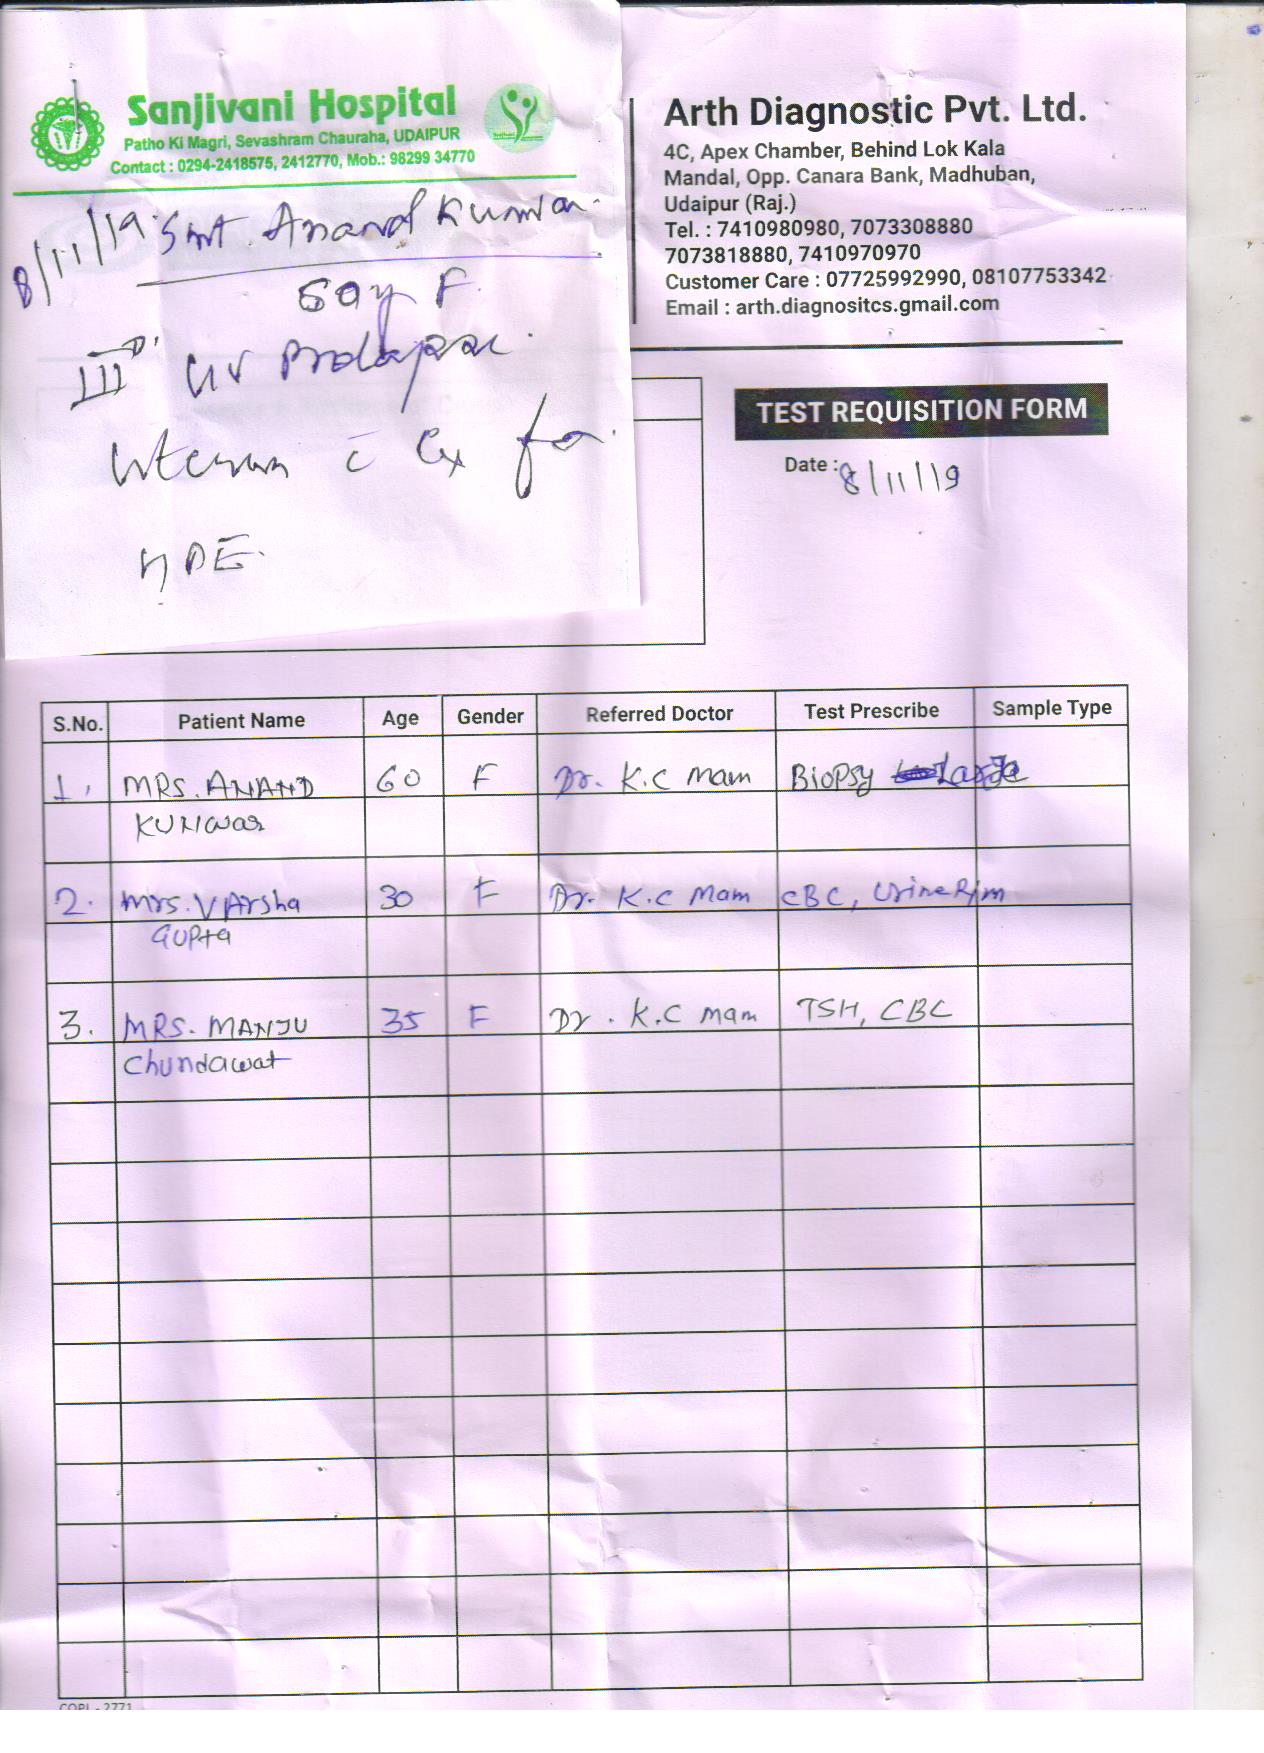 Sanjivani Hospital
Patho Ki Magri, Sevashram Chauraha, UDAIPUR
Contact : 0294-2418575, 2412770, Mob.: 98299 34770
8/11/19 Smt. Anand Kunwar.
60y F
IIID UV Prolapse.
Uterus c Cx for
HPE.
Arth Diagnostic Pvt. Ltd.
4C, Apex Chamber, Behind Lok Kala
Mandal, Opp. Canara Bank, Madhuban,
Udaipur (Raj.)
Tel. : 7410980980, 7073308880
7073818880, 7410970970
Customer Care : 07725992990, 08107753342
Email : arth.diagnositcs.gmail.com
TEST REQUISITION FORM
Date : 8/11/19
S.No. Patient Name Age Gender Referred Doctor Test Prescribe Sample Type
1. MRS. ANAND 60 F Dr. K.C Mam Biopsy Large
KUNWAR
2. Mrs. VArsha 30 F Dr. K.C Mam CBC, Urine R/m
GUPta
3. MRS. MANJU 35 F Dr. K.C Mam TSH, CBC
Chundawat
COPL - 2771